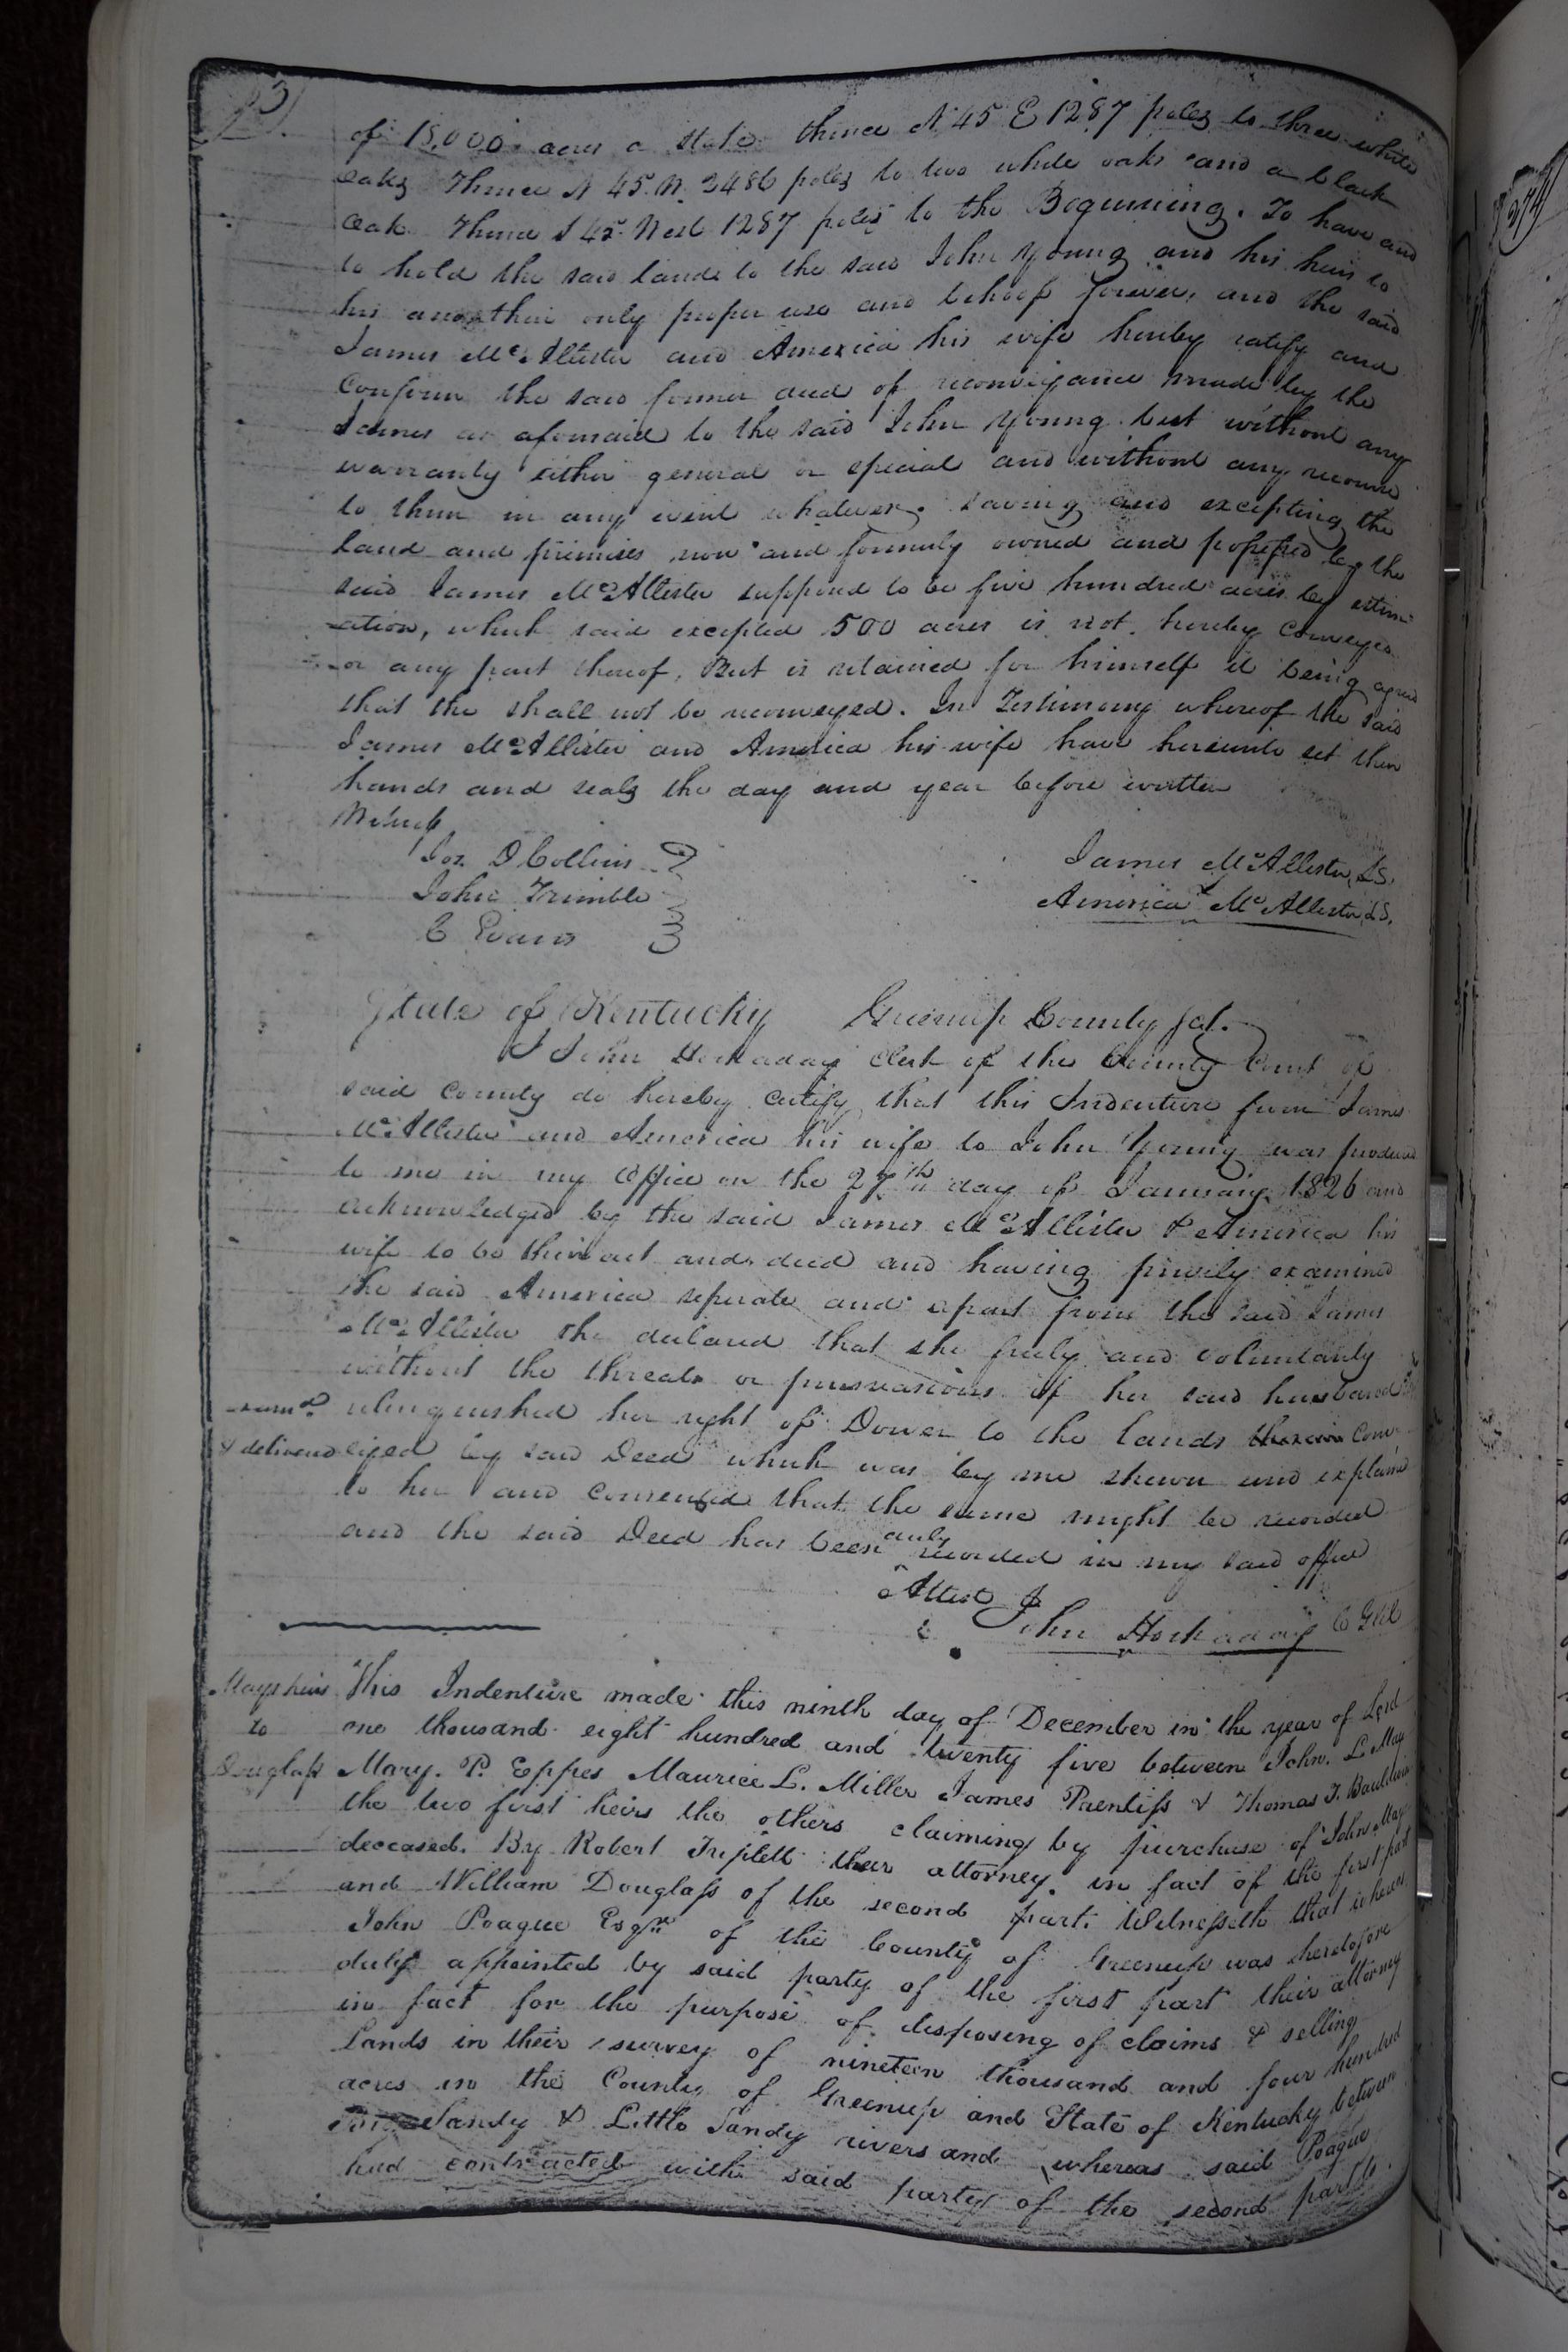 of 15,000 acres a stake thence N 45 E 1287 poles to three white
oaks Thence N 45. W. 2486 poles to two white oaks and a black
oak Thence S 45 West 1287 poles to the Beginning. To have and
to hold the said lands to the said John Young and his heirs to
his and their only proper use and behoof forever, and the said
James McAllister and America his wife hereby ratify and
Confirm the said former deed of reconveyance made by the
James as aforesaid to the said John Young but without any
warranty either general or special and without any recourse
to them in any event whatever. saving and excepting the
land and premises now and formerly owned and possessed by the
said James McAllister supposed to be five hundred acres by estim
-ation, which said excepted 500 acres is not hereby conveyed
or any part thereof, But is retained for himself it being agreed
that the shall not be reconveyed. In Testimony whereof the said
James McAllister and America his wife have hereunto set their
hands and seals the day and year before written
Witness
Jos. D Collins
John Trimble
C Evans
James McAllister, LS.
America McAllister, LS.
State of Kentucky Greenup County Sct.
I John Hockaday Clerk of the County Court of
said County do hereby certify that this Indenture from James
McAllister and America his wife to John Young was produced
to me in my office on the 27th day of January 1826 and
acknowledged by the said James McAllister & America his
wife to be their act and deed and having privily examined
the said America seperate and apart from the said James
McAllister she declared that she freely and voluntarily
without the threats or persuasions of her said husband
relinquished her right of Dower to the lands therein conv-
& delivered eyed by said Deed which was by me shewn and explained
to her and consented that the same might be recorded
and the said Deed has been duly recorded in my said office
Attest
John Hockaday
Mays heirs
to
Douglass
This Indenture made this ninth day of December in the year of Lord
one thousand eight hundred and twenty five between John. L. May
Mary. P. Eppes Maurice L. Miller James Prentiss & Thomas T. Bauldwin
the two first heirs the others claiming by purchase of John May
deceased. By Robert Triplett their attorney in fact of the first part
and William Douglass of the second part. Witnesseth that whereas
John Poague Esqr of the County of Greenup was heretofore
duly appointed by said party of the first part their attorney
in fact for the purpose of disposing of claims & selling
Lands in their survey of nineteen thousand and four hundred
acres in the County of Greenup and State of Kentucky between
Sandy & Little Sandy rivers and whereas said Poague
had contracted with said party of the second part to